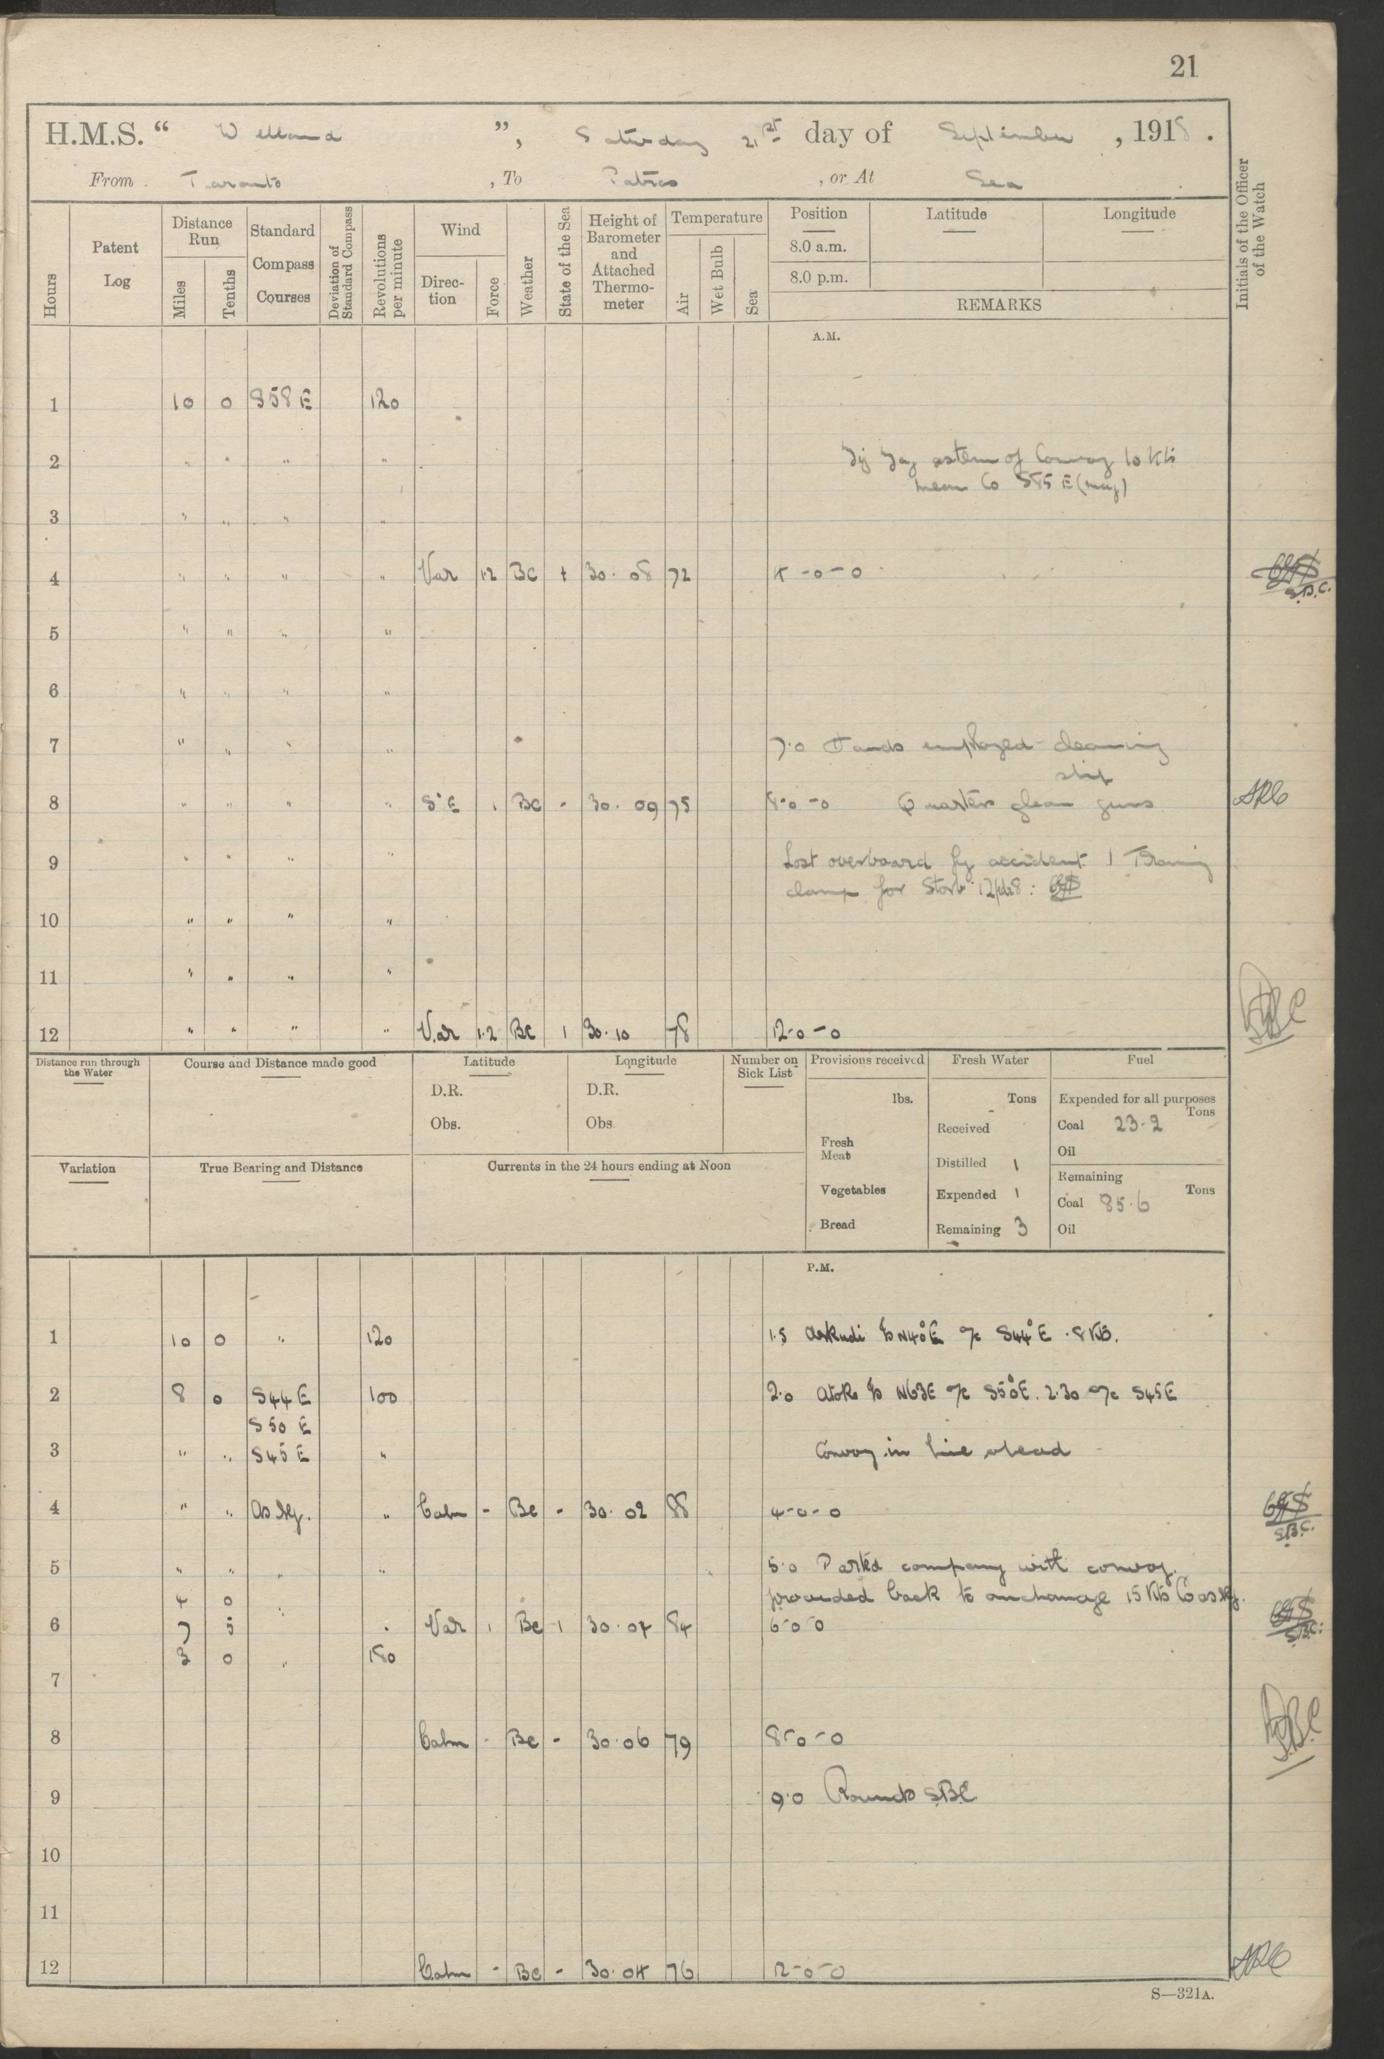 21
H.M.S. “ Welland ”, Saturday 21st day of September , 1918 .
From Taranto , To Patras , or At Sea
Initials of the Officer of the Watch
Hours
Patent Log
Distance Run
Miles
Tenths
Standard Compass Courses
Deviation of Standard Compass
Revolutions per minute
Wind
Direction
Force
Weather
State of the Sea
Height of Barometer and Attached Thermometer
Temperature
Air
Wet Bulb
Sea
Position
8.0 a.m.
8.0 p.m.
Latitude
Longitude
REMARKS
A.M.
1 10 0 S58E 120
2 " " " " Zig Zag astern of Convoy 10 Kts
mean Co S55E (mag)
3 " " " "
4 " " " " Var 1.2 Bc 30.08 72 -0-0
S.B.C.
5 " " " "
6 " " " "
7 " " " " 7.0 Hands employed cleaning
ship
8 " " " " S'E 1 Bc - 30.09 75 8-0-0 Quarters clean guns
9 " " " Lost overboard by accident 1 Training
clamp for
10 " " " "
11 " " " "
12 " " " " Var 1.2 Bc 1 30.10 78 12-0-0
Distance run through the Water
Course and Distance made good
Latitude
D.R.
Obs.
Longitude
D.R.
Obs
Number on Sick List
Provisions received
lbs.
Fresh Meat
Vegetables
Bread
Fresh Water
Tons
Received
Distilled 1
Expended 1
Remaining 3
Fuel
Expended for all purposes
Tons
Coal 23.2
Oil
Remaining
Tons
Coal 85.6
Oil
Variation
True Bearing and Distance
Currents in the 24 hours ending at Noon
P.M.
1 10 0 " 120 1.5 Arkudi N40°E a/c S44°E . 8 Kts.
2 8 0 S44E 100 2.0 Atok N63E a/c S50°E. 2.30 a/c S45E
S50 E
3 " " S45E " Convoy in line ahead
4 " " " Calm - Bc - 30.02 88 4-0-0
S.B.C.
5 " " " " 5.0 Parted company with convoy
4 0 proceeded back to anchorage 15 Kts Co
6 7 5 " " Var 1 Bc 1 30.04 84 6-0-0
S.B.C.
3 0 " 180
7
8 Calm - Bc - 30.06 79 8-0-0
9 9.0 Rounds SBC
10
11
12 Calm - Bc - 30.04 76 12-0-0
S—321A.